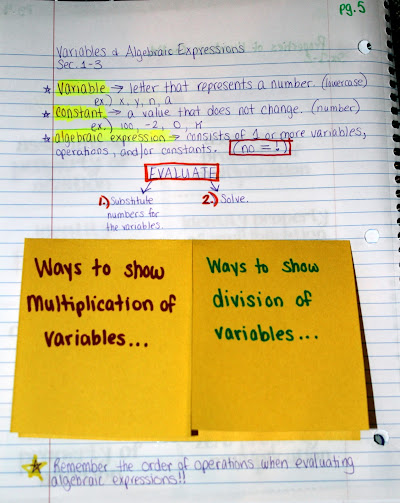 pg.5
Variables & Algebraic Expressions
Sec. 1-3
★ Variable → letter that represents a number. (lowercase)
ex.) x, y, n, a
★ constant → a value that does not change. (number)
ex.) 100, -2, 0, π
★ algebraic expression → consists of 1 or more variables,
operations, and/or constants. (no = !)
EVALUATE
1.) Substitute
numbers for
the variables.
2.) Solve.
Ways to show
Multiplication of
variables...
Ways to show
division of
variables...
Remember the order of operations when evaluating
algebraic expressions!!